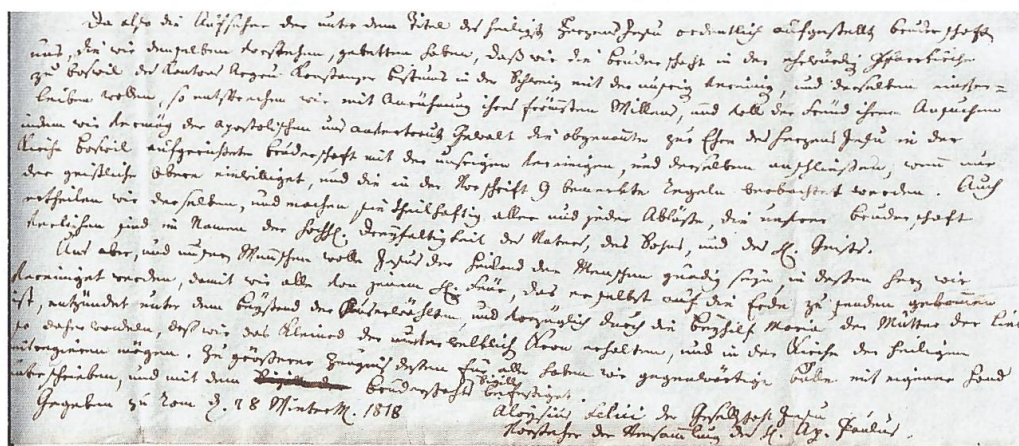 Da also die Aufseher der unter dem Titel des heiligst Herzens Jesu ordentlich aufgestellte bruderschaft
uns, die wir demselben vorstehen, gebetten haben, daß wir die bruderschaft in der Pfarrkirche
zu boswil des Kantons Argeu Konstanzer bistums in der Schweiz mit der unsrig vereinig, und derselben einver=
leiben wollen, so entsprechen wir mit Anrühmung ihres frömsten Willens, und voll der Freud ihrem Ansuchen
indem wir vermög der apostolischen uns Gewalt die obgenante zur Ehre des Herzens Jesu in der
Kirche boswil aufgerichtete bruderschaft mit der unsrigen vereinigen, und derselben anschließen, wenn nur
der geistliche Obere einwilliget, und die in der Vorschrift 9 bemerkte Regeln beobachtet werden. Auch
ertheilen wir derselben, und machen sie theilhaftig aller und jeder Abläße, die unsrer bruderschaft
verliehen sind im Namen der Dreyfaltigkeit des Vaters, des Sohns, und des Hl. Geists.
Uns aber, und unsern Wünschen wolle Jesus der Heiland der Menschen gnädig seyn, in dessen Herz wir
vereiniget werden, damit wir alle von jenem Hl. Feür, das er selbst auf die Erde zu senden gekommen
ist, entzündet unter dem beystand der Auserwählten, und vorzüglich durch die beyhilf Maria der Mutter der Lieb
so daher wandeln, daß wir das Kleinod der Kron erhalten, und in der Kirche der Heiligen
mögen. Zu größerer Zeugniß dessen für alle haben wir gegenwärtige bulle mit eigener Hand
unterschrieben, und mit dem bruderschafts Sigill befestiget.
Gegeben zu Rom d. 28 Winterm. 1818
Aloysius Felici der Gesellschaft Jesu
Vorsteher der Versammlung des hl. Ap. Paulus